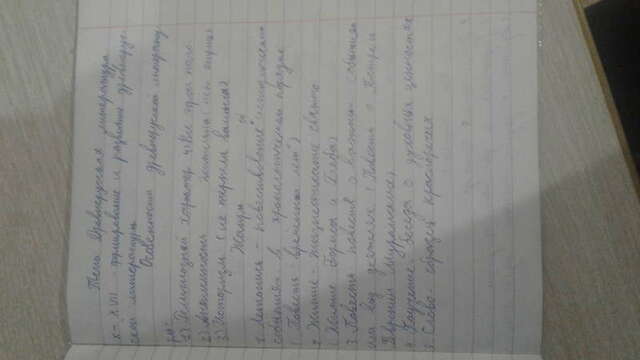 Тема Древнерусская литература
X - XVII - формирование и развитие древнерус-
ской литературы
Особенности древнерусской литерату-
ры:
1) Религиозный характер
2) Анонимность (нет
3) Историзм (не терпела вымысла)
Жанры
1. Летопись - повествование исторических
событиях в хронологическом порядке
("Повесть временных лет")
2. Житие - жизнеописание святых
(Житие Бориса и Глеба)
3. Повесть повеств о важных событиях
или
(Повесть о Петре и
Февронии Муромских)
4. Поучение - беседа о духовных ценностях
5. Слово - образец красноречия